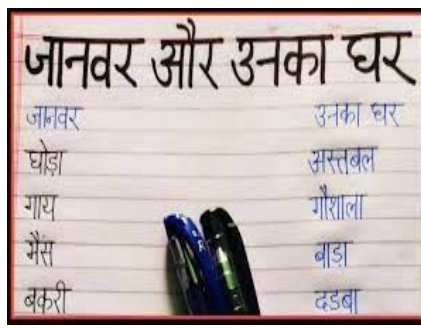 जानवर और उनका घर
जानवर उनका घर
घोड़ा अस्तबल
गाय गौशाला
भैंस बाड़ा
बकरी दडबा